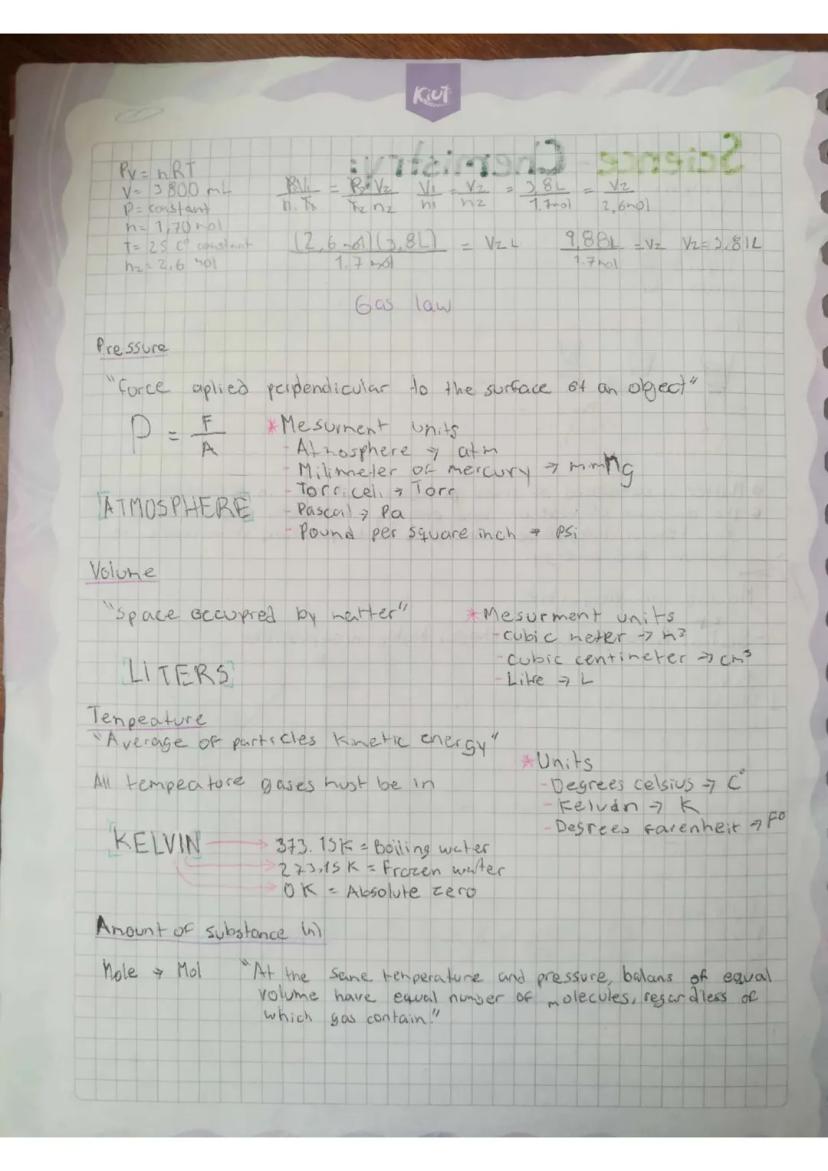 Kiut
Science Chemistry:
PV = nRT
V = 3800 mL
P = constant
n = 1,70 mol
T = 25 C° constant
n₂ = 2,6 mol
V₁/n₁ = V₂/n₂ = 3,8L/1.7mol = V₂/2,6mol
(2,6 mol)(3,8L)/1.7 mol = V₂ L 9,88L/1.7mol = V₂ V₂ = 5,81L
Gas law
Pressure
"Force aplied perpendicular to the surface of an object"
P = F/A
*Mesurment units
- Atmosphere → atm
- Milimeter of mercury → mmHg
- Torriceli → Torr
ATMOSPHERE
- Pascal → Pa
- Pound per square inch → Psi
Volume
"Space occupied by matter"
*Mesurment units
- cubic meter → m³
- cubic centimeter → cm³
- Litre → L
LITERS
Tempeature
"Average of particles kinetic energy"
*Units
All tempeature gases must be in
- Degrees celsius → C°
- Kelvin → K
- Degrees farenheit → F°
KELVIN → 373.15K = Boiling water
→ 273,15K = Frozen water
→ 0K = Absolute zero
Amount of substance (n)
Mole → Mol "At the same temperature and pressure, balans of equal
volume have equal number of molecules, regardless of
which gas contain."